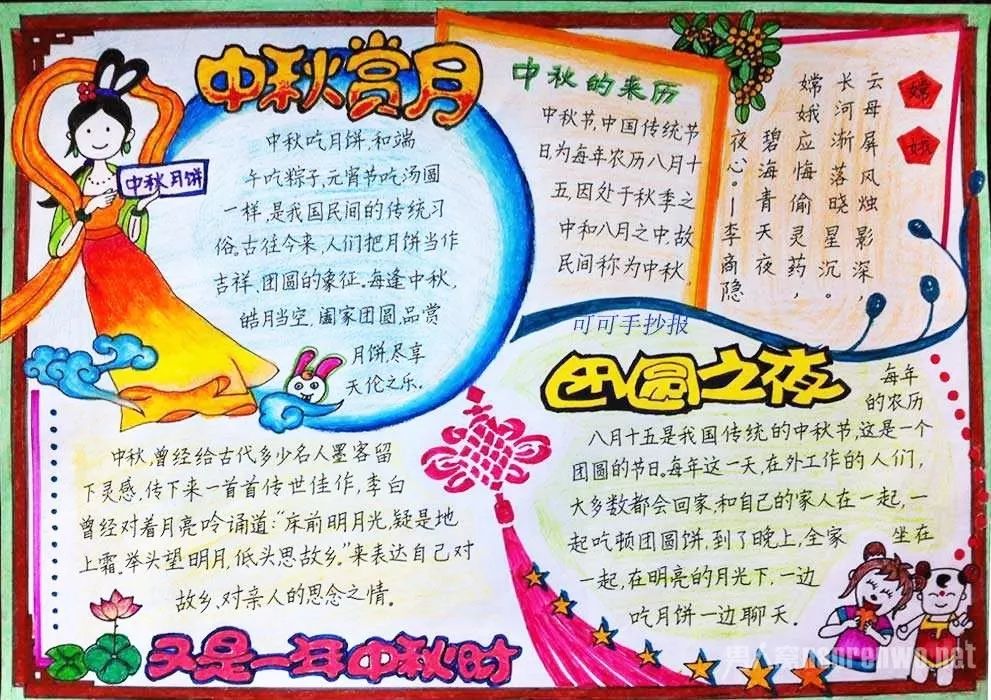 中秋赏月
中秋月饼
中秋吃月饼,和端
午吃粽子,元宵节吃汤圆
一样,是我国民间的传统习
俗。古往今来,人们把月饼当作
吉祥、团圆的象征。每逢中秋,
皓月当空,阖家团圆,品赏
月饼,尽享
天伦之乐。
中秋的来历
中秋节,中国传统节
日为每年农历八月十
五,因处于秋季之
中和八月之中,故
民间称为中秋。
嫦
娥
云母屏风烛影深,
长河渐落晓星沉。
嫦娥应悔偷灵药,
碧海青天夜
夜心。—李商隐
可可手抄报
团圆之夜
每年
的农历
八月十五是我国传统的中秋节,这是一个
团圆的节日。每年这一天,在外工作的人们,
大多数都会回家,和自己的家人在一起,一
起吃顿团圆饼,到了晚上,全家 坐在
一起,在明亮的月光下,一边
吃月饼一边聊天。
中秋,曾经给古代多少名人墨客留
下灵感,传下来一首首传世佳作,李白
曾经对着月亮吟诵道:“床前明月光,疑是地
上霜。举头望明月,低头思故乡。”来表达自己对
故乡,对亲人的思念之情。
又是一年中秋时